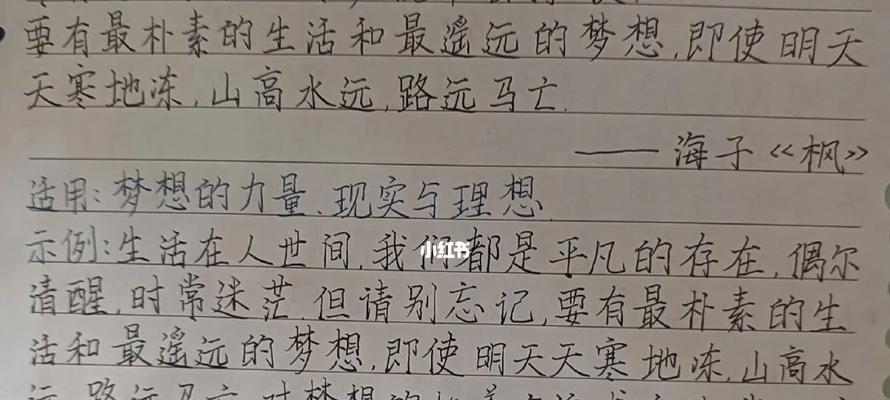 要有最朴素的生活和最遥远的梦想,即使明天
天寒地冻,山高水远,路远马亡.
——海子《枫》
适用:梦想的力量、现实与理想.
示例:生活在人世间,我们都是平凡的存在,偶尔
小红书
清醒,时常迷茫.但请别忘记,要有最朴素的生
活和最遥远的梦想,即使明天天寒地冻,山高水